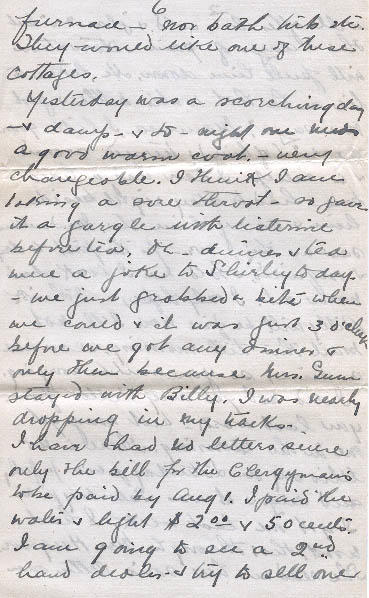 6
furnace - nor bath tub etc.
They would like one of these
cottages.
Yesterday was a scorching day
- & damp - & to-night one needs
a good warm coat. - very
changeable. I think I am
taking a sore throat - so gave
it a gargle with listerine
before tea. Oh - dinner & tea
were a joke to Shirley to day
- we just grabbed a bite when
we could & it was just 3 o'clock
before we got any dinner &
only then because Mrs. Gunn
stayed with Billy. I was nearly
dropping in my tracks.
I have had no letters since
only the bill for the Clergyman's
to be paid by Aug 1. I paid the
water & light $2.00 & 50 cents.
I am going to see a 2nd
hand dealer & try to sell one